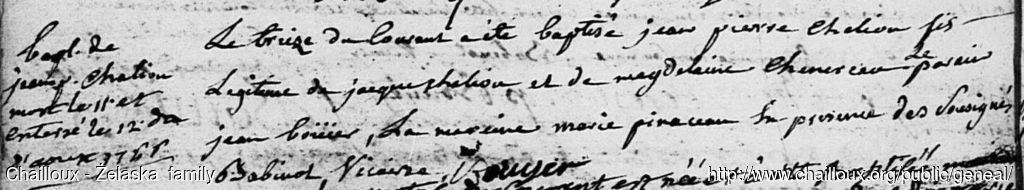 bapt. de
jean p. chaliou
mort le 11 et
enterré le 12 d
Le treize du Courant a été baptisé jean pierre chaliou fils
Legitime de jacque chaliou, et de magdelaine chenereau Le parain
jean boüier, La maraine marie pinaceau En présence des Sousignés
Babinot, Vicaire, Bouyer
Chailloux - Zelaska family
http://www.chailloux.org/public/geneal/